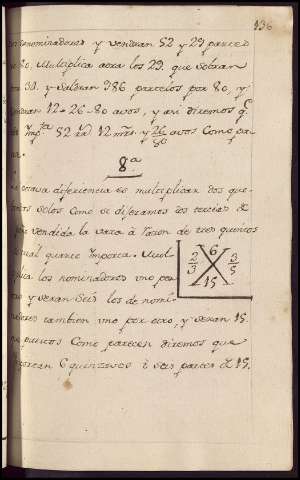 136
denominadores y vendran 52 y 29 partes
80. Multiplica aora los 29. que sobran
y saldran 986 partelos por 80, y
12-26-80 avos, y asi diremos q.e
52 r.s 12 mrs. y 26/80 avos Como pa
8ª
octava diferiencia es multiplicar dos que-
brados solos Como si dixeramos dos tercios de
vendida la vara à razon de tres quintos
qual quanto ymporta. Mul
los nominadores uno por
y seran Seis los de nomi-
tambien uno por otro, y seran 15.
Como parecen diremos que
6 quinzavos ò seis partes de 15.
2/3 6 3/5
15